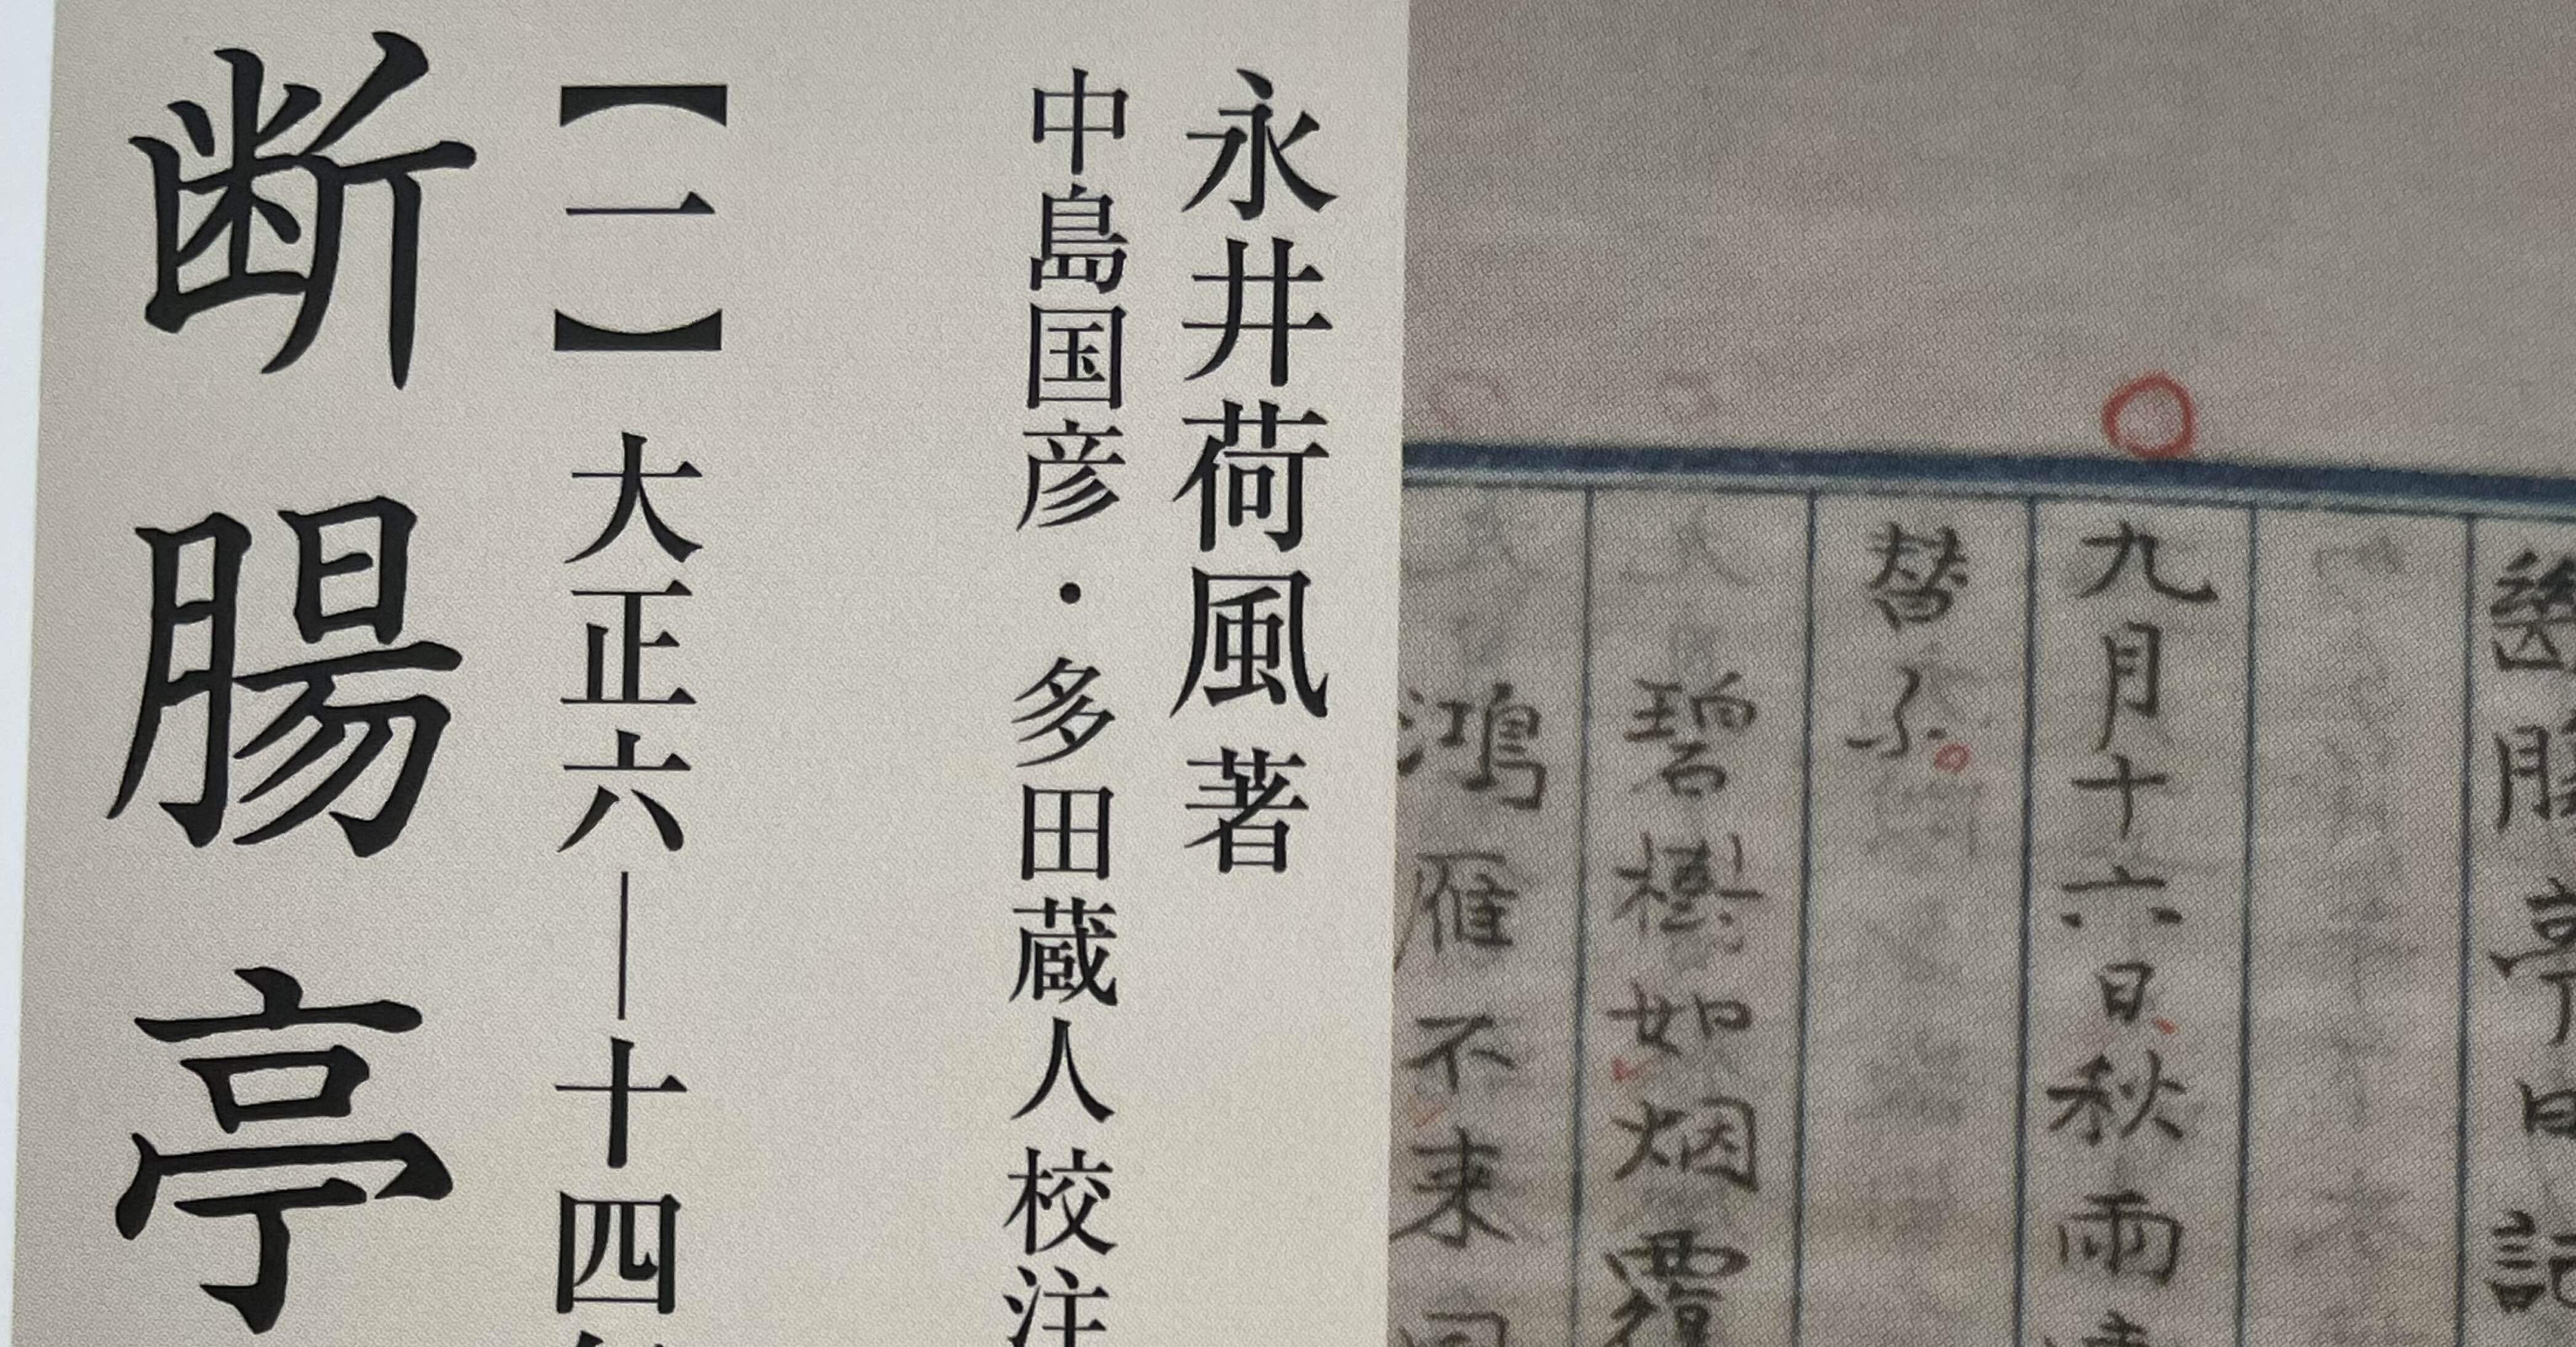 断腸亭
【一】大正六―十四
中島国彦・多田蔵人校注
永井荷風 著
鴻雁不来
碧樹如烟覆
替ふ。
九月十六日、秋雨
断腸亭日記